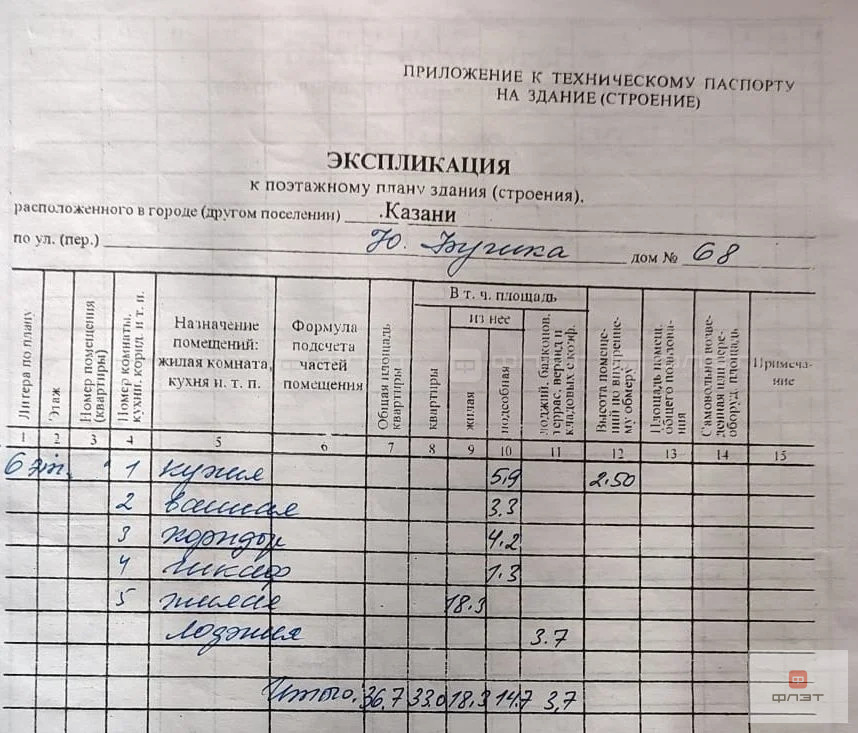 ПРИЛОЖЕНИЕ К ТЕХНИЧЕСКОМУ ПАСПОРТУ
НА ЗДАНИЕ (СТРОЕНИЕ)
ЭКСПЛИКАЦИЯ
к поэтажному плану здания (строения),
расположенного в городе (другом поселении) .Казани
по ул. (пер.) Ю. Фучика дом № 68
Литера по плану
Этаж
Номер помещения (квартиры)
Номер комнаты, кухни, корид. и т. п.
Назначение помещений: жилая комната, кухня и. т. п.
Формула подсчета частей помещения
Общая площадь квартиры
В т. ч. площадь
квартиры
из нее
жилая
подсобная
лоджий, балконов, террас, веранд и кладовых с коэф.
Высота помещений по внутреннему обмеру
Площадь помещ. общего пользования
Самовольно возведенная или переоборуд. площадь
Примечание
1 2 3 4 5 6 7 8 9 10 11 12 13 14 15
6 эт. 1 кухня 5,9 2.50
2 ванная 3.3
3 коридор 4.2
4 шкаф 1.3
5 жилая 18.3
лоджия 3.7
Итого. 36.7 33.0 18.3 14.7 3,7
ФЛЭТ